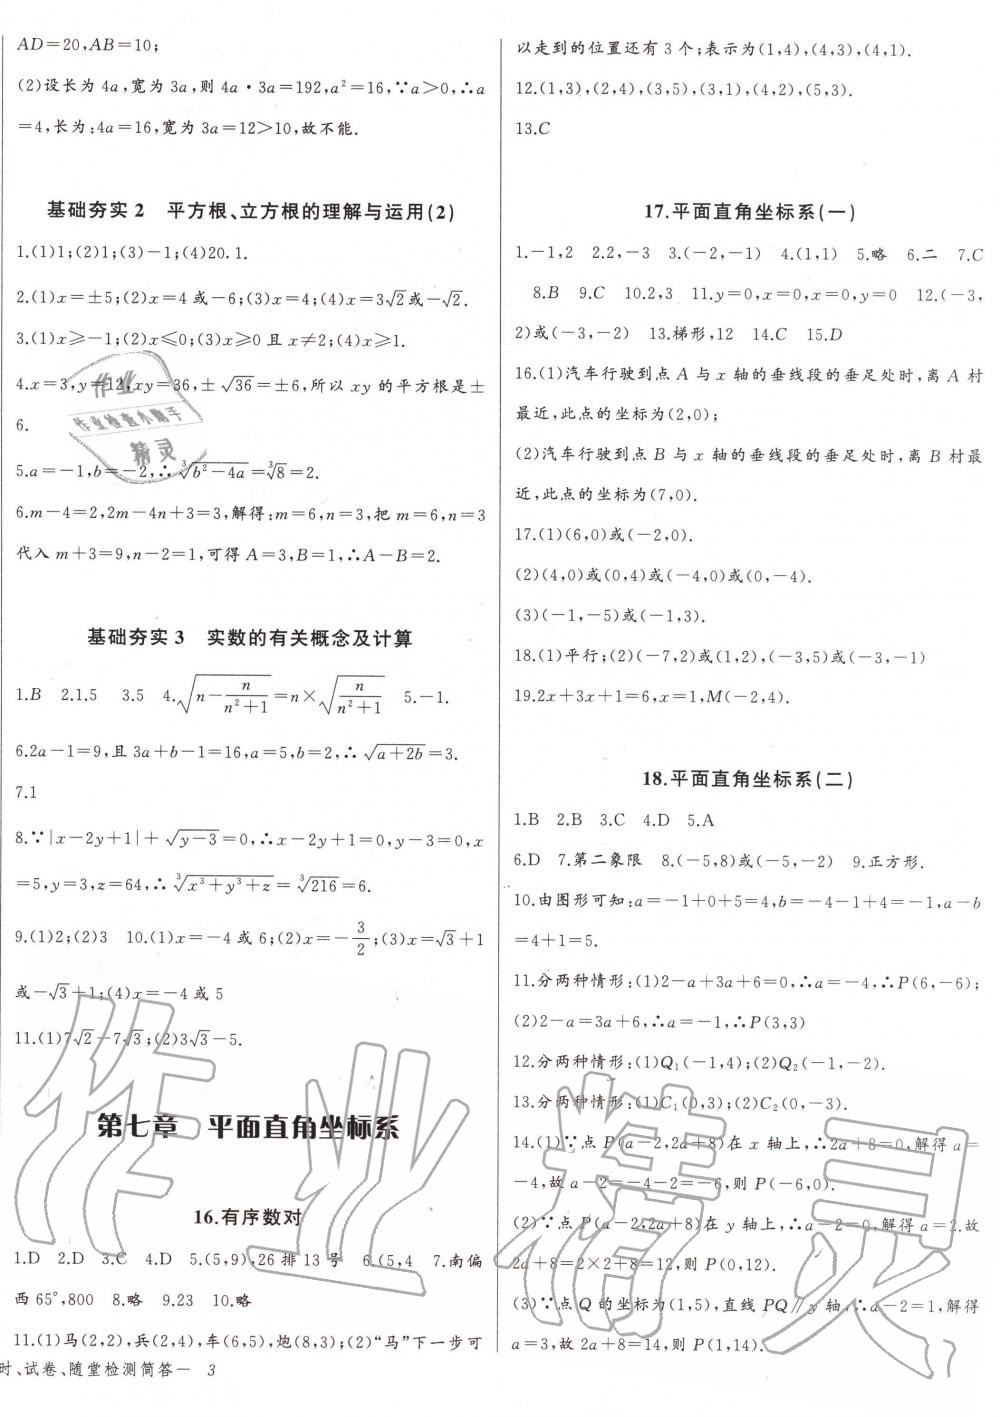 AD=20,AB=10;
(2)设长为 4a,宽为 3a,则 4a·3a=192,a²=16,∵a>0,∴a
=4,长为:4a=16,宽为 3a=12>10,故不能.
基础夯实 2　平方根、立方根的理解与运用(2)
1.(1)1;(2)1;(3)-1;(4)20.1.
2.(1)x=±5;(2)x=4 或-6;(3)x=4;(4)x=3√2或-√2.
3.(1)x≥-1;(2)x≤0;(3)x≥0 且 x≠2;(4)x≥1.
4.x=3,y=12,xy=36,±√36=±6,所以 xy 的平方根是±
6.
5.a=-1,b=-2,∴∛(b²-4a)=∛8=2.
6.m-4=2,2m-4n+3=3,解得:m=6,n=3,把 m=6,n=3
代入 m+3=9,n-2=1,可得 A=3,B=1,∴A-B=2.
基础夯实 3　实数的有关概念及计算
1.B　2.1.5　3.5　4.√(n-n/(n²+1))=n×√(n/(n²+1))　5.-1.
6.2a-1=9,且 3a+b-1=16,a=5,b=2,∴√(a+2b)=3.
7.1
8.∵|x-2y+1|+√(y-3)=0,∴x-2y+1=0,y-3=0,x
=5,y=3,z=64,∴∛(x³+y³+z)=∛216=6.
9.(1)2;(2)3　10.(1)x=-4 或 6;(2)x=-3/2;(3)x=√3+1
或-√3+1;(4)x=-4 或 5
11.(1)7√2-7√3;(2)3√3-5.
第七章　平面直角坐标系
16.有序数对
1.D　2.D　3.C　4.D　5.(5,9),26 排 13 号　6.(5,4　7.南偏
西65°,800　8.略　9.23　10.略
11.(1)马(2,2),兵(2,4),车(6,5),炮(8,3);(2)“马”下一步可
时、试卷、随堂检测简答— 3
以走到的位置还有 3 个;表示为(1,4),(4,3),(4,1).
12.(1,3),(2,4),(3,5),(3,1),(4,2),(5,3).
13.C
17.平面直角坐标系(一)
1.-1,2　2.2,-3　3.(-2,-1)　4.(1,1)　5.略　6.二　7.C
8.B　9.C　10.2,3　11.y=0,x=0,x=0,y=0　12.(-3,
2)或(-3,-2)　13.梯形,12　14.C　15.D
16.(1)汽车行驶到点 A 与 x 轴的垂线段的垂足处时,离 A 村
最近,此点的坐标为(2,0);
(2)汽车行驶到点 B 与 x 轴的垂线段的垂足处时,离 B 村最
近,此点的坐标为(7,0).
17.(1)(6,0)或(-2,0).
(2)(4,0)或(0,4)或(-4,0)或(0,-4).
(3)(-1,-5)或(-1,3).
18.(1)平行;(2)(-7,2)或(1,2),(-3,5)或(-3,-1)
19.2x+3x+1=6,x=1,M(-2,4).
18.平面直角坐标系(二)
1.B　2.B　3.C　4.D　5.A
6.D　7.第二象限　8.(-5,8)或(-5,-2)　9.正方形.
10.由图形可知:a=-1+0+5=4,b=-4-1+4=-1,a-b
=4+1=5.
11.分两种情形:(1)2-a+3a+6=0,∴a=-4,∴P(6,-6);
(2)2-a=3a+6,∴a=-1,∴P(3,3)
12.分两种情形:(1)Q₁(-1,4);(2)Q₂(-1,-2).
13.分两种情形:(1)C₁(0,3);(2)C₂(0,-3).
14.(1)∵点 P(a-2,2a+8)在 x 轴上,∴2a+8=0,解得 a=
-4,故 a-2=-4-2=-6,则 P(-6,0).
(2)∵点 P(a-2,2a+8)在 y 轴上,∴a-2=0,解得 a=2.故
2a+8=2×2+8=12,则 P(0,12).
(3)∵点 Q 的坐标为(1,5),直线 PQ∥y 轴,∴a-2=1,解得
a=3,故 2a+8=14,则 P(1,14).
作业
作业检查小助手
精灵
作业精灵